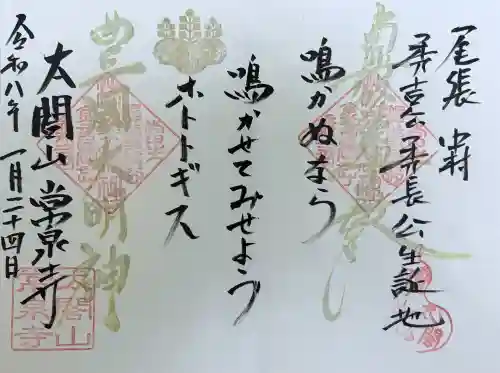 尾張 中村
秀吉公 秀長公生誕地
南無妙法蓮華経
鳴かぬなら
鳴かせてみせよう
ホトトギス
豊国大明神
太閤山 常泉寺
令和八年 一月二十四日
太閤山
常泉寺